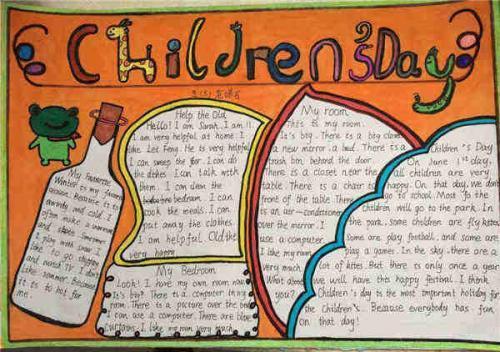 Children's Day
Help the Old
Hello! I am Sarah. I am 11
I am very helpful at home. I
like Lei Feng. He is very helpful
I can sweep the for. I can do
the dishes. I can talk with
them. I can clean the
bedroom. I can
cook the meals. I can
put away the clothes.
I am helpful. Old the
very happy
My Bedroom
Look! I have my own room now.
It's big. There is a computer in my
room. There is a picture over the bed
I can use a computer. There are blue
curtains. I like my room very much.
My room
This is my room.
It's big. There is a big closet
a new mirror a bed. There is a
trash bin behind the door.
There is a closet near the
table. There is a chair in
front of the table. There
is an air-conditioner
over the mirror. I
use a computer
I like my room
very much.
What about
you?
Children's Day
On June 1st day,
all children are very
happy. On that day, we don't
go to school. Most fo the
children will go to the park. In
the park, some children are fly kites,
Some are play football, and some are
play a games. In the sky, there are a
lot of kites. But there is only once a year
we will have this happy festival. I think
Children's day is the most important holiday for
the Children's. Because everybody has fun
on that day!
My Favourite
Winter is my favourite
season. Because it is
windy and cold. I
often make a snowman
and
play with snow. I
like to go skating
and
like summer. Because
it is to hot for
me.